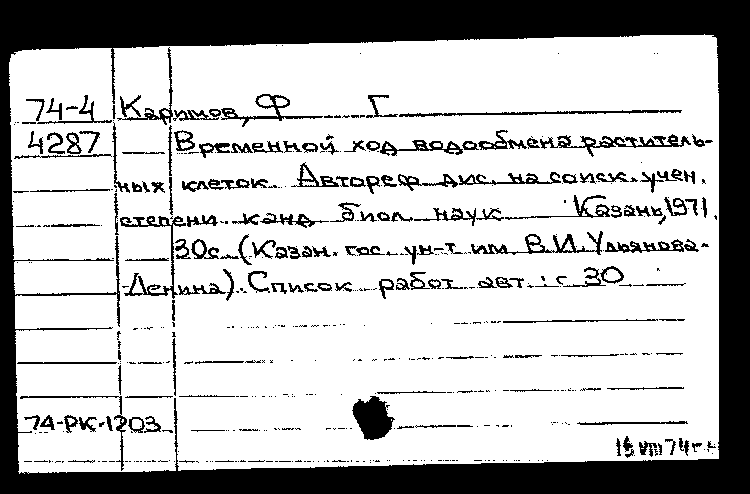 74-4 Каримов, Ф Г
4287 Временной ход водообмена раститель-
ных клеток. Автореф. дис. на соиск. учен.
степени канд. биол. наук Казань, 1971.
30с. (Казан. гос. ун-т им. В.И. Ульянова-
Ленина). Список работ авт.: с 30
74-РК-1203
VIII 74